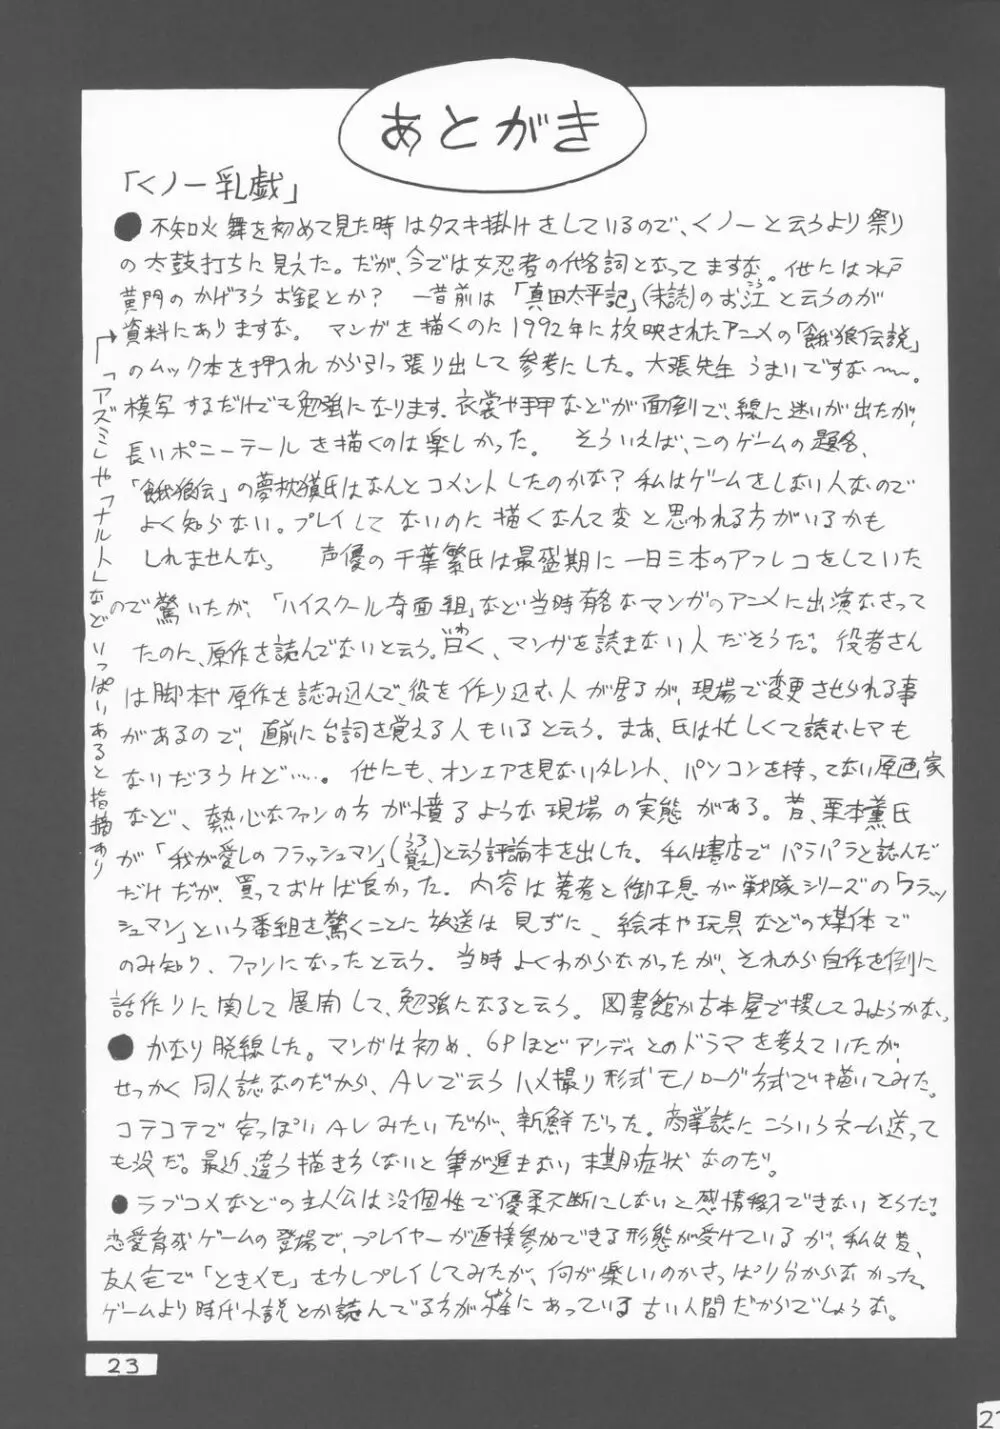 あとがき
「くノ一乳戯」
●不知火舞を初めて見た時はタスキ掛けをしているので、くノ一と云うより祭り
の太鼓打ちに見えた。だが、今では女忍者の代名詞となってますな。他には水戸
黄門のかげろうお銀とか? 一昔前は「真田太平記」(未読)のお江と云うのが
こう
資料にありますな。 マンガを描くのに1992年に放映されたアニメの「餓狼伝説」
のムック本を押入れから引っ張り出して参考にした。大張先生うまいですな〜。
模写するだけでも勉強になります。衣裳や手甲などが面倒で、線に迷いが出たが、
長いポニーテールを描くのは楽しかった。 そういえば、このゲームの題名、
「餓狼伝」の夢枕獏氏はなんとコメントしたのかな?私はゲームをしない人なので
よく知らない。プレイしてないのに描くなんて変と思われる方がいるかも
しれませんな。 声優の千葉繁氏は最盛期に一日三本のアフレコをしていた
ので驚いたが、「ハイスクール奇面組」など当時有名なマンガのアニメに出演なさって
たのに、原作を読んでないと云う。曰く、マンガを読まない人だそうだ。役者さん
いわ
は脚本や原作を読み込んで、役を作り込む人が居るが、現場で変更させられる事
があるので、直前に台詞を覚える人もいると云う。まあ、氏は忙しくて読むヒマも
ないだろうけど……。他にも、オンエアを見ないタレント、パソコンを持ってない原画家
など、熱心なファンの方が憤るような現場の実態がある。昔、栗本薫氏
が「我が愛しのフラッシュマン」(うろ覚え)と云う評論本を出した。私は書店でパラパラと読んだ
だけだが、買っておけば良かった。内容は著者と御子息が戦隊シリーズの「フラッ
シュマン」という番組を驚くことに放送は見ずに、絵本や玩具などの媒体で
のみ知り、ファンになったと云う。当時よくわからなかったが、それから自作を例に
話作りに関して展開して、勉強になると云う。図書館か古本屋で捜してみようかな。
●かなり脱線した。マンガは初め、6Pほどアンディとのドラマを考えていたが、
せっかく同人誌なのだから、AVで云うハメ撮り形式モノローグ方式で描いてみた。
コテコテで安っぽいAVみたいだが、新鮮だった。商業誌にこういうネーム送って
も没だ。最近、違う描き方しないと筆が進まない末期症状なのだ。
●ラブコメなどの主人公は没個性で優柔不断にしないと感情移入できないそうだ。
恋愛育成ゲームの登場で、プレイヤーが直接参加できる形態が受けているが、私は昔、
友人宅で「ときメモ」を少しプレイしてみたが、何が楽しいのかさっぱり分からなかった。
ゲームより時代小説とか読んでる方が性にあっている古い人間だからでしょうな。
→「アズミ」や「ナルト」などいっぱいあると指摘あり
23